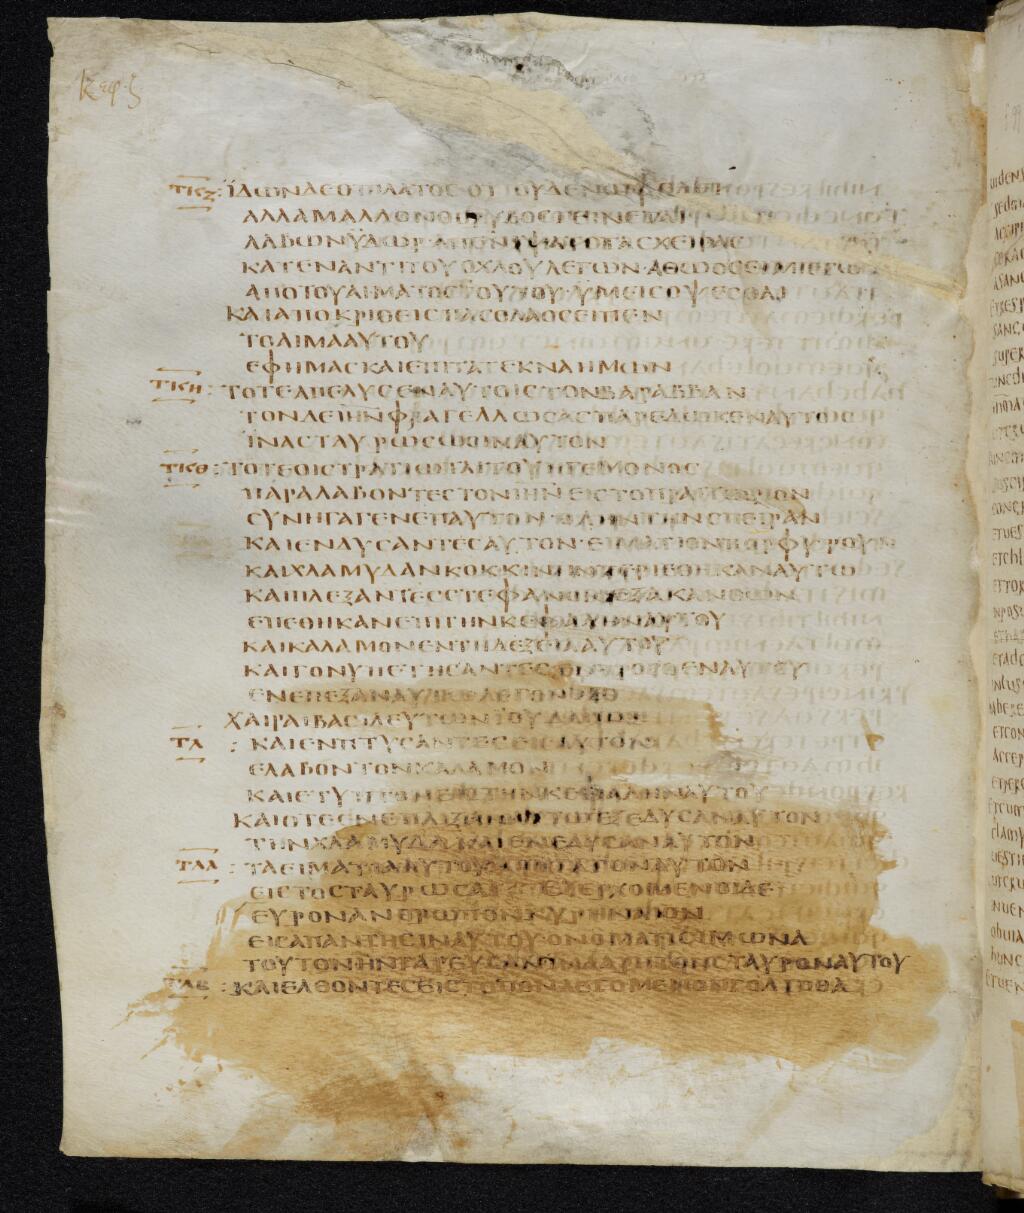 κεφ. ζ
ΤΚΖ: ΪΔΩΝΔΕΟΠΙΛΑΤΟϹΟΤΙΟΥΔΕΝΩΦΕΛΕΙ
ΑΛΛΑΜΑΛΛΟΝΘΟΡΥΒΟϹΓΕΙΝΕΤΑΙ
ΛΑΒΩΝΫΔΩΡ·ΑΠΕΝΙΨΑΤΟΤΑϹΧΕΙΡΑϹ
ΚΑΤΕΝΑΝΤΙΤΟΥΟΧΛΟΥΛΕΓΩΝ·ΑΘΩΟϹΕΙΜΙΕΓΩ
ΑΠΟΤΟΥΑΙΜΑΤΟϹΤΟΥΤΟΥ·ΫΜΕΙϹΟΨΕϹΘΑΙ
ΚΑΙΑΠΟΚΡΙΘΕΙϹΠΑϹΟΛΑΟϹΕΙΠΕΝ
ΤΟΑΙΜΑΑΥΤΟΥ
ΕΦΗΜΑϹΚΑΙΕΠΙΤΑΤΕΚΝΑΗΜΩΝ
ΤΚΗ: ΤΟΤΕΑΠΕΛΥϹΕΝΑΥΤΟΙϹΤΟΝΒΑΡΑΒΒΑΝ
ΤΟΝΔΕΙΗΝΦΛΑΓΕΛΛΩϹΑϹΠΑΡΕΔΩΚΕΝΑΥΤΟΙϹ
ΪΝΑϹΤΑΥΡΩϹΩϹΙΝΑΥΤΟΝ
ΤΚΘ: ΤΟΤΕΟΙϹΤΡΑΤΙΩΤΑΙΤΟΥΗΓΕΜΟΝΟϹ
ΠΑΡΑΛΑΒΟΝΤΕϹΤΟΝΙΗΝΕΙϹΤΟΠΡΑΙΤΩΡΙΟΝ
ϹΥΝΗΓΑΓΕΝΕΠΑΥΤΟΝ·ΟΛΗΝΤΗΝϹΠΕΙΡΑΝ
ΚΑΙΕΝΔΥϹΑΝΤΕϹΑΥΤΟΝ·ΕΙΜΑΤΙΟΝΠΟΡΦΥΡΟΥΝ
ΚΑΙΧΛΑΜΥΔΑΝΚΟΚΚΙΝΗΝΠΕΡΙΕΘΗΚΑΝΑΥΤΩ
ΚΑΙΠΛΕΞΑΝΤΕϹϹΤΕΦΑΝΟΝΕΞΑΚΑΝΘΩΝ
ΕΠΕΘΗΚΑΝΕΠΙΤΗΝΚΕΦΑΛΗΝΑΥΤΟΥ
ΚΑΙΚΑΛΑΜΟΝΕΝΤΗΔΕΞΕΙΑΑΥΤΟΥ
ΚΑΙΓΟΝΥΠΕΤΗϹΑΝΤΕϹΕΜΠΡΟϹΘΕΝΑΥΤΟΥ
ΕΝΕΠΕΞΑΝΑΥΤΩΛΕΓΟΝΤΕϹ
ΧΑΙΡΑΙΒΑϹΙΛΕΥΤΩΝΪΟΥΔΑΙΩΝ
ΤΛ : ΚΑΙΕΝΠΤΥϹΑΝΤΕϹΕΙϹΑΥΤΟΝ
ΕΛΑΒΟΝΤΟΝΚΑΛΑΜΟΝ
ΚΑΙΕΤΥΠΤΟΝΕΙϹΤΗΝΚΕΦΑΛΗΝΑΥΤΟΥ
ΚΑΙΟΤΕϹΝΕΠΑΙΞΑΝΑΥΤΩΕΞΕΔΥϹΑΝΑΥΤΟΝ
ΤΗΝΧΛΑΜΥΔΑ·ΚΑΙΕΝΕΔΥϹΑΝΑΥΤΟΝ
ΤΛΑ : ΤΑΕΙΜΑΤΙΑΑΥΤΟΥΑΠΗΓΑΓΟΝΑΥΤΟΝ
ΕΙϹΤΟϹΤΑΥΡΩϹΑΙ·ΕΞΕΡΧΟΜΕΝΟΙΔΕ
ΕΥΡΟΝΑΝΘΡΩΠΟΝΚΥΡΗΝΑΙΟΝ
ΕΙϹΑΠΑΝΤΗϹΙΝΑΥΤΟΥ·ΟΝΟΜΑΤΙϹΙΜΩΝΑ
ΤΟΥΤΟΝΗΝΓΑΡΕΥϹΑΝΙΝΑΑΡΗΤΟΝϹΤΑΥΡΟΝΑΥΤΟΥ
ΤΛΒ : ΚΑΙΕΛΘΟΝΤΕϹΕΙϹΤΟΠΟΝΛΕΓΟΜΕΝΟΝΓΟΛΓΟΘΑ